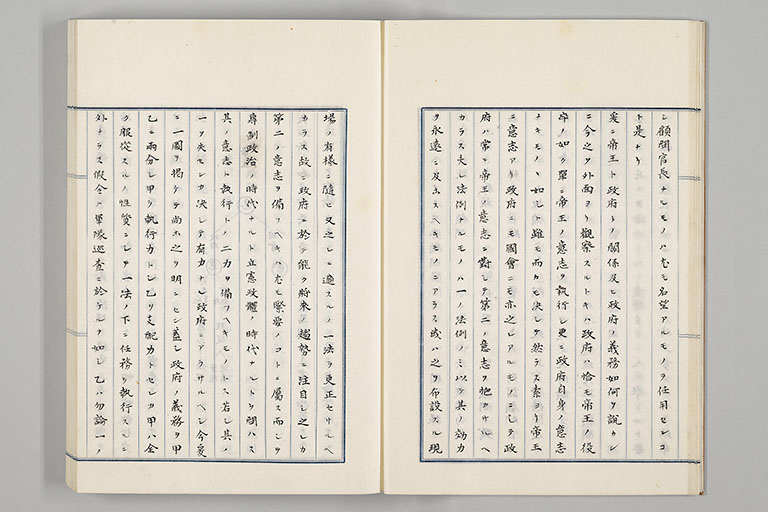 シ顧問官長タルモノハ尤モ名望アルモノヲ任用センコ
ト是ナリ
爰ニ帝王ト政府トノ關係及ヒ政府ノ義務如何ヲ説カン
ニ今之ヲ外面ヨリ觀察スルトキハ政府ハ恰モ帝王ノ役
卒ノ如ク單ニ帝王ノ意志ヲ執行シ更ニ政府自身ノ意志
ナキモノヽ如シト雖モ而カモ決シテ然ラス素ヨリ帝王
ニ意志アリ政府ニモ國會ニモ亦之レアルモノニシテ政
府ハ常ニ帝王ノ意志ニ對シテ第二ノ意志ヲ抱カサルヘ
カラス夫レ法例ナルモノハ一ノ法例ノミ以テ其ノ効力
ヲ永遠ニ及ホスヘキモノニアラス或ハ之ヲ布設スル現
場ノ有樣ニ隨ヒ又之レニ適スルノ一法ヲ更正セサルヘ
カラス故ニ政府ニ於テ能ク將來ノ趨勢ニ注目シ之レカ
第二ノ意志ヲ備フヘキハ尤モ緊要ノコトニ屬ス而シテ
專制政治ノ時代ナルト立憲政體ノ時代ナルトヲ問ハス
其ノ意志ト執行トノ二力ヲ備フヘキモノトス若シ其ノ
一ヲ失センカ決シテ有力ナル政府ニアラサルヘシ今爰
ニ一國ヲ掲ケテ尚ホ之ヲ明ニセン蓋シ政府ノ義務ヲ甲
乙ニ兩分シ甲ヲ執行力トシ乙ヲ支配力トセンカ甲ハ全
ク服從スルノ性質ニシテ一法ノ下ニ任務ヲ執行スルニ
外ナラス假令ハ軍隊巡査ニ於ケルカ如シ乙ハ勿論一ノ